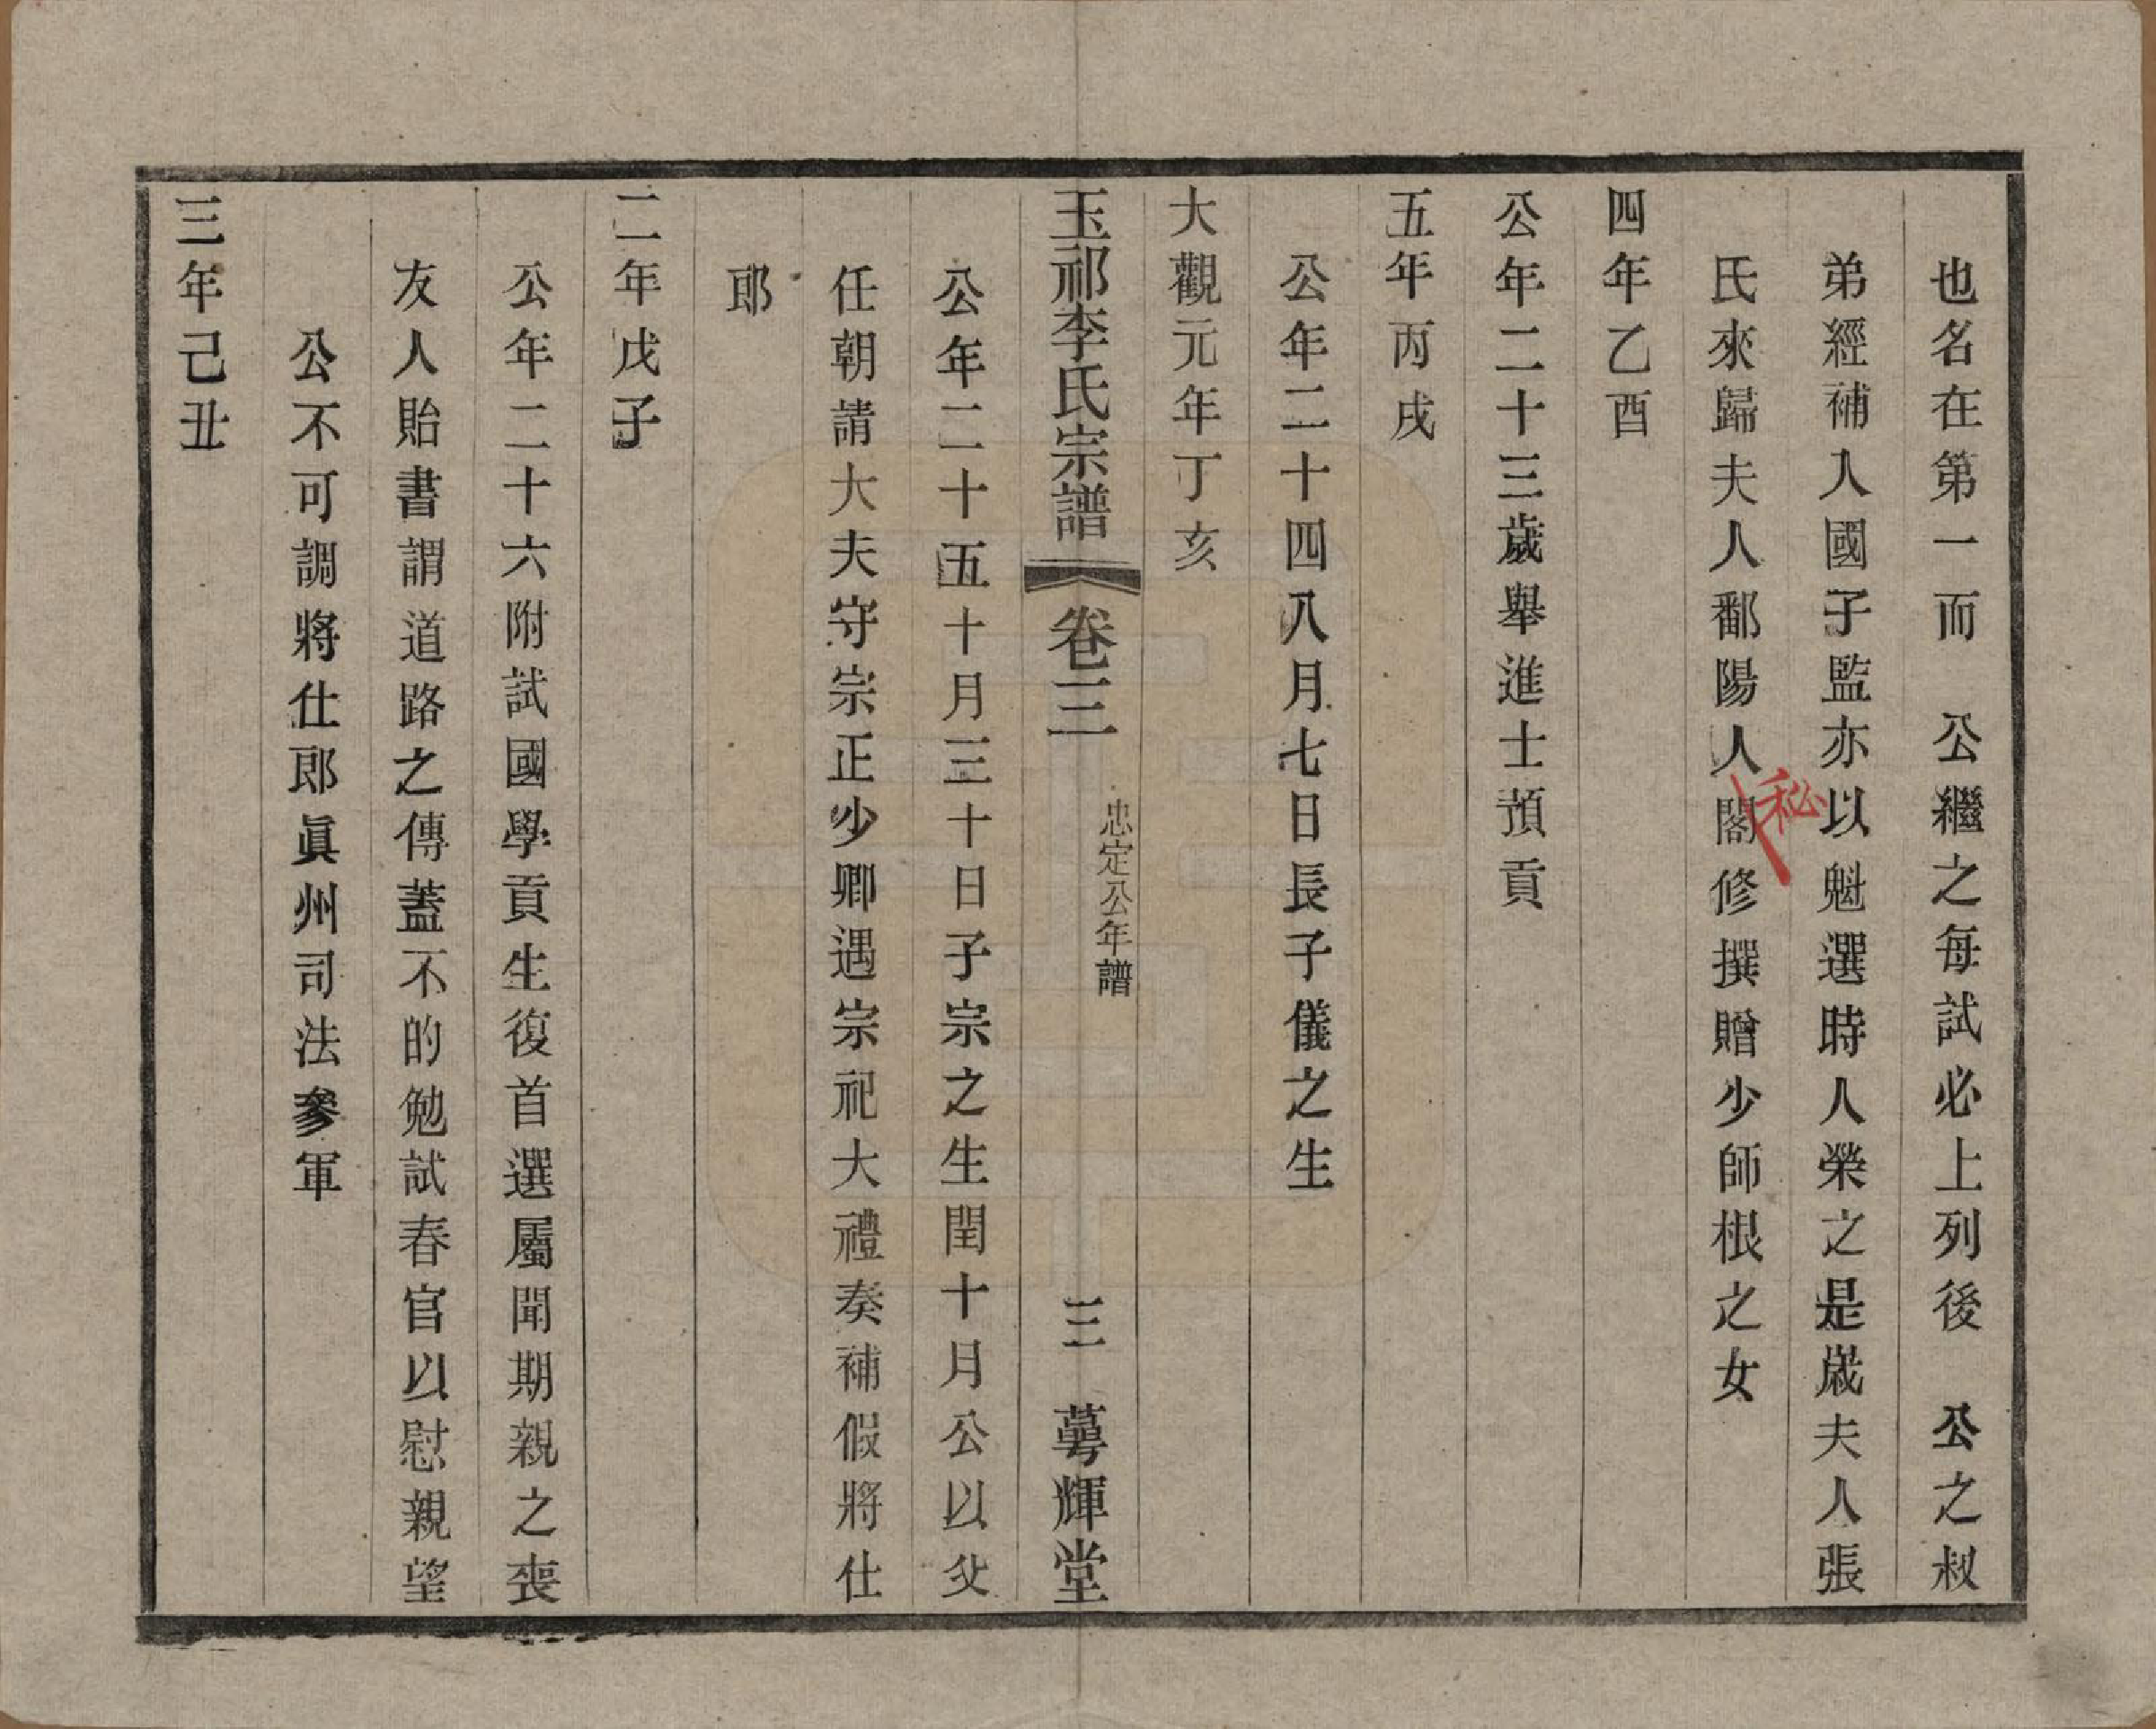 也名在第一而　公繼之每試必上列後　公之叔
弟經補入國子監亦以魁選時人榮之是歲夫人張
氏來歸夫人鄱陽人閣修撰贈少師根之女
秘
四年乙酉
公年二十三歲舉進士預貢
五年丙戌
公年二十四八月七日長子儀之生
大觀元年丁亥
玉祁李氏宗譜　卷三　忠定公年譜　三　萼輝堂
公年二十五十月三十日子宗之生閏十月公以父
任朝請大夫守宗正少卿遇宗祀大禮奏補假將仕
郎
二年戊子
公年二十六附試國學貢生復首選屬聞期親之喪
友人貽書謂道路之傳蓋不的勉試春官以慰親望
公不可調將仕郎眞州司法參軍
三年己丑